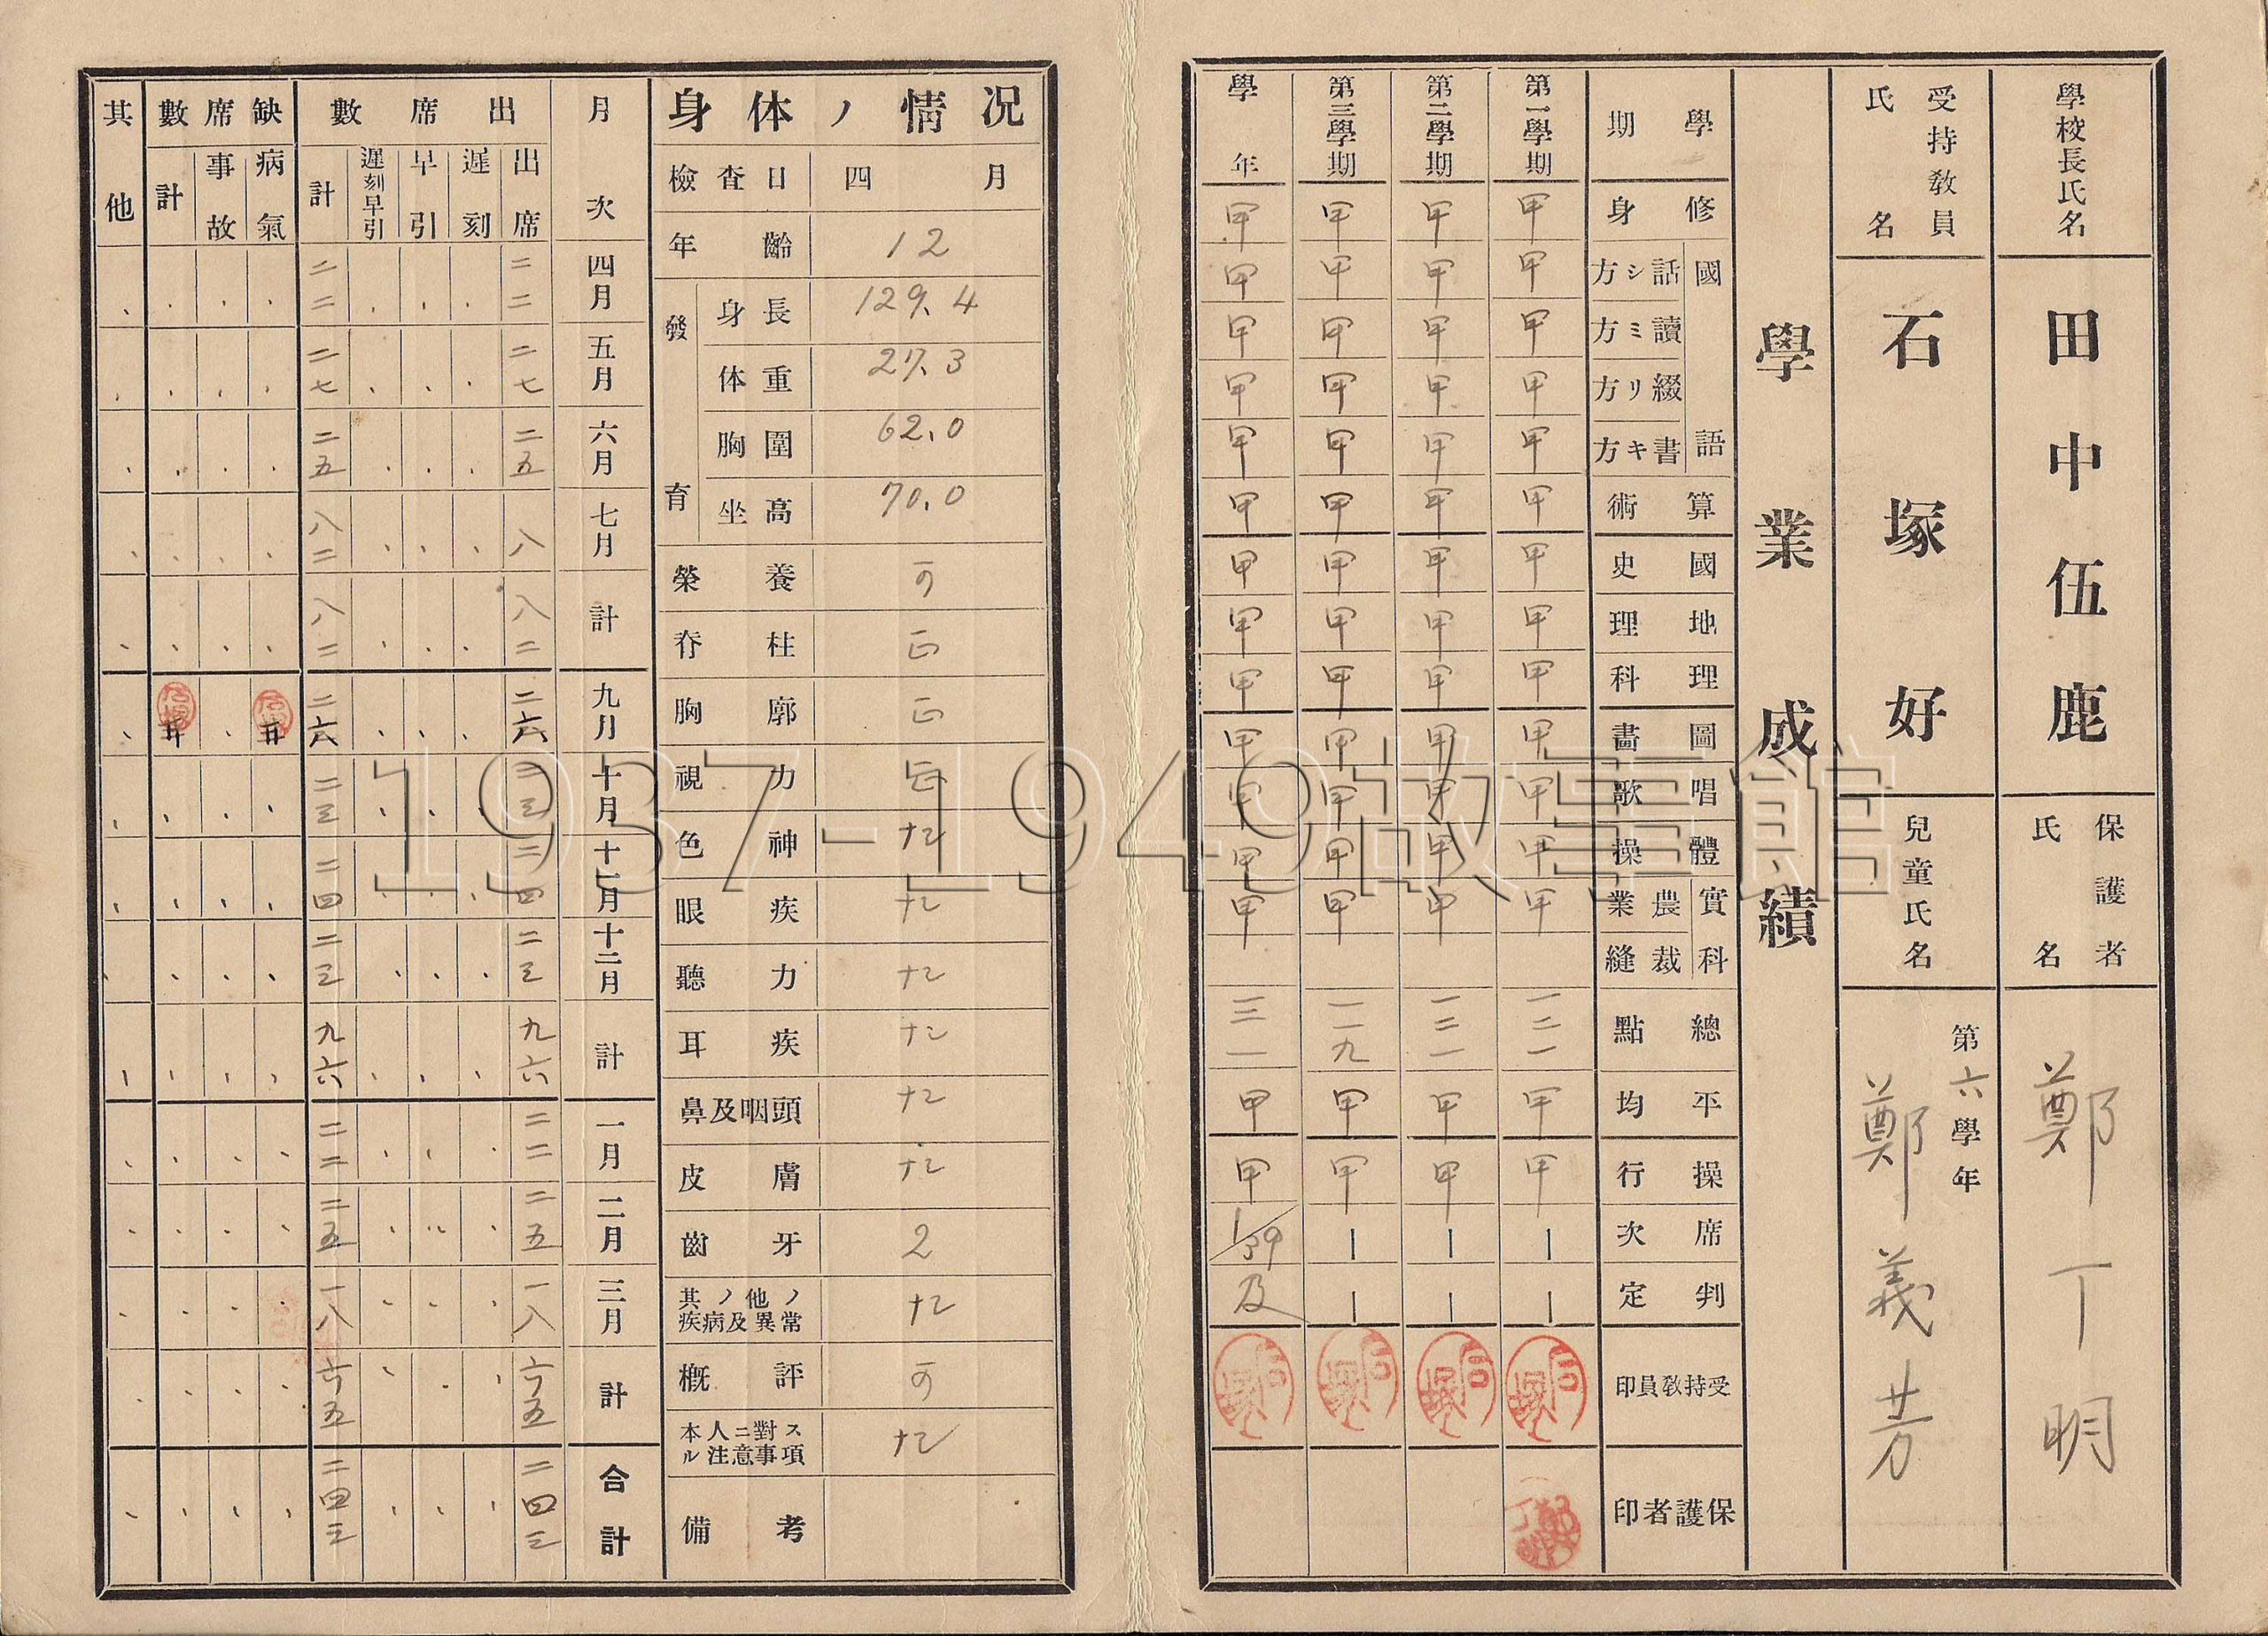 學校長氏名 田中伍鹿
保護者氏名 鄭丁明
受持教員氏名 石塚好
兒童氏名 第六學年 鄭義芳
學業成績
學期 修身 國語 話シ方 讀ミ方 綴リ方 書キ方 算術 國史 地理 理科 圖畵 唱歌 體操 實科 農業 裁縫 總點 平均 操行 席次 判定 受持敎員印 保護者印
第一學期 甲 甲 甲 甲 甲 甲 甲 甲 甲 甲 甲 甲 甲 一二一 甲 甲 ー ー 石塚
第二學期 甲 甲 甲 甲 甲 甲 甲 甲 甲 甲 甲 甲 甲 一二一 甲 甲 ー ー 石塚
第三學期 甲 甲 甲 甲 甲 甲 甲 甲 甲 甲 甲 甲 甲 一一九 甲 甲 ー ー 石塚
學年 甲 甲 甲 甲 甲 甲 甲 甲 甲 甲 甲 甲 甲 甲 甲 1/39 及 石塚
身体ノ情況
檢査日 四月
年齡 12
發育
身長 129.4
体重 27.3
胸圍 62.0
坐高 70.0
榮養 可
脊柱 正
胸廓 正
視力 正
色神 ナシ
眼疾 ナシ
聽力 ナシ
耳疾 ナシ
鼻及咽頭 ナシ
皮膚 ナシ
齒牙 2
其ノ他ノ疾病及異常 ナシ
槪評 可
本人ニ對スル注意事項 ナシ
備考
月次 四月 五月 六月 七月 計 九月 十月 十一月 十二月 計 一月 二月 三月 計 合計
出席數
出席 二二 二七 二五 八 八二 二六 二三 二四 二三 九六 二二 二五 一八 六五 二四三
遲刻
早引
遲刻早引
計 二二 二七 二五 八二 八二 二六 二三 二四 二三 九六 二二 二五 一八 六五 二四三
缺席數
病氣
事故
計
其他
1937-1949故事館